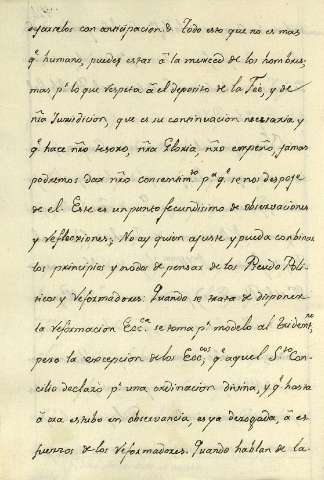 ejarselos con anticipacion &. Todo esto que no es mas
q.e humano, puedes estar á la merced de los hombres,
mas p.r lo que respeta á el deposito de la Fee, y de
nra Iurisdicion, que es su continuacion necesaria y
q.e hace nro tesoro, nra Gloria, nro empeño, jamas
podremos dar nro consentim.to p.a q.e se nos despoje
de el. Este es un punto fecundisimo de observaciones
y reflecciones; No ay quien ajuste y pueda conbinar
los principios y modos de pensar de los Pseudo Poli-
ticos y Reformadores. Quando se trata de disponer
la reformacion Ecc.ca se toma p.r modelo al Trident.no
pero la excepcion de los Ecc.cos, q.e aquel S.to Con-
cilio declaró p.r una ordinacion divina, y q.e hasta
á ora estubo en observancia, es ya derogada, á es
fuerzos de los reformadores. Quando hablan de la